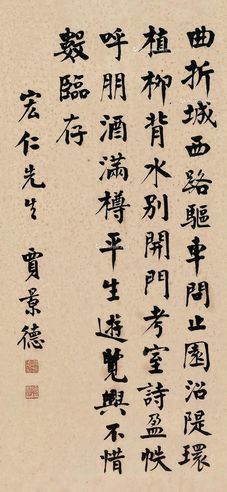 曲折城西路驅車問止園沿隄環
植柳背水別開門考室詩盈帙
呼朋酒滿樽平生遊覽興不惜
數臨存
宏仁先生
賈景德